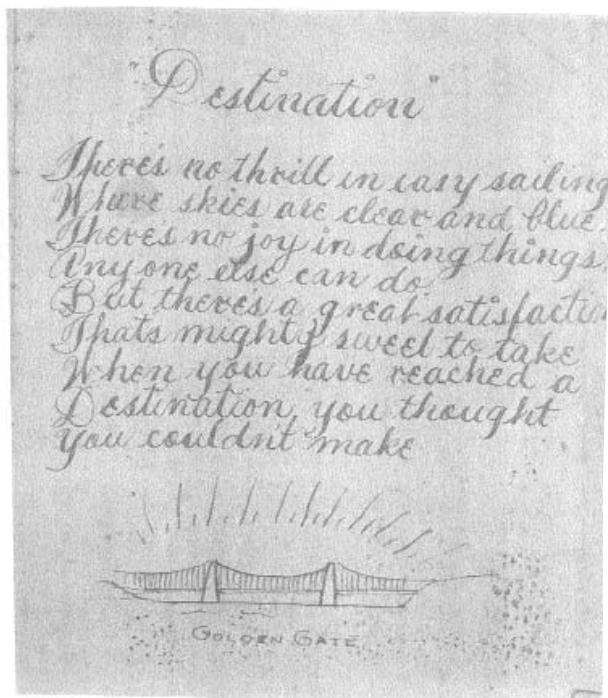 "Destination"
There's no thrill in easy sailing
Where skies are clear and blue.
Theres no joy in doing things
Any one else can do.
But theres a great satisfaction
Thats mighty sweet to take
When you have reached a
Destination, you thought
you couldn't make
GOLDEN GATE